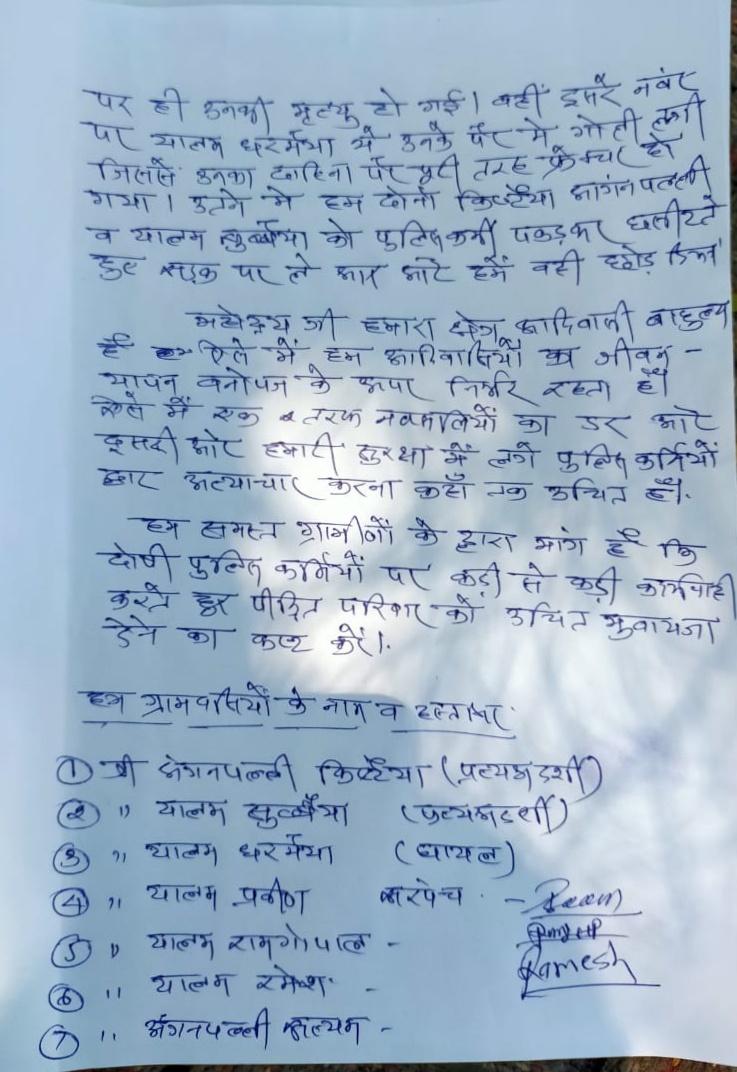 पर ही उनकी मृत्यु हो गई। वहीं दुसरे नवंर
पर यालम धरमैया ये उनके पैर मे गोली लगी
जिससे उनका दाहिना पैर पुरी तरह फ्रेक्चर हो
गया। इतने मे हम दोनो किष्टैया आंगनपल्ली
व यालम सुब्बैया को पुलिसकर्मी पकड़कर घसीटते
हुए सड़क पर ले आए और हमें वही छोड़ दिया
महोदय जी हमारा क्षेत्र आदिवासी बाहुल्य
है ऐसे में हम आदिवासियों का जीवन -
यापन वनोपज के ऊपर निर्भर रहता है।
ऐसे में एक तरफ नक्सलियों का डर और
दूसरी ओर हमारी सुरक्षा में लगे पुलिस कर्मियों
द्वारा अत्याचार करना कहाँ तक उचित है।
हम समस्त ग्रामीणों के द्वारा मांग है कि
दोषी पुलिस कर्मियों पर कड़ी से कड़ी कार्यवाही
करते हुए पीड़ित परिवार को उचित मुवायजा
देने का कष्ट करें।
हम ग्रामवासियों के नाम व हस्ताक्षर
① श्री अंगनपल्ली किष्टैया (प्रत्यक्षदर्शी)
② " यालम सुब्बैया (प्रत्यक्षदर्शी)
③ " यालम धरमैया (घायल)
④ " यालम प्रवीण सरपंच -
⑤ " यालम रामगोपाल -
⑥ " यालम रमेश - Ramesh
⑦ " अंगनपल्ली सत्यम -